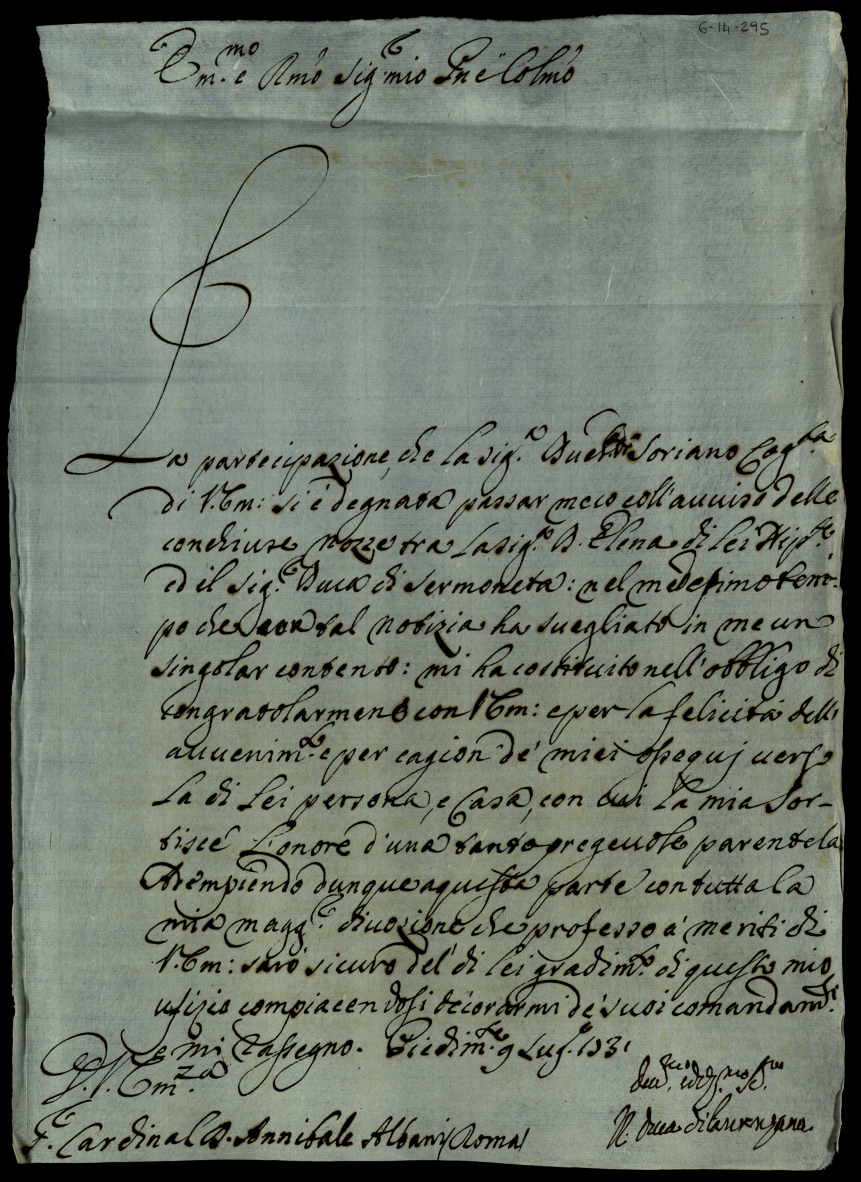 6-14-295
Em.mo e Rmo Sig.r mio Pne Colmo
La partecipazione, che la sig.a Duchssa Soriano Cog.ta
di V.Em: si è degnata passar meco coll'avviso delle
conchiuse nozze tra la sig.a D. Elena di lei Nip.te
ed il sig.r Duca di Sermoneta: nel medesimo tem-
po che con tal notizia ha svegliato in me un
singolar contento: mi ha costituito nell'obbligo di
congratolarmene con V.Em: e per la felicità dell'
avvenim.to e per cagion de' miei ossequj verso
la di lei persona, e Casa, con cui la mia sor-
tisce l'onore d'una tanto pregevole parentela
Adempiendo dunque a questa parte con tutta la
mia magg.r divozione che professo a' meriti di
V.Em: sarò sicuro del di lei gradim.to di questo mio
ufizio compiacendosi decorarmi de' suoi comandam.ti
e mi rassegno. Piedim.te 9 Lug.o 1731
D.V.Em.za
S.r Cardinal D. Annibale Albani (Roma)
N. Duca di Laurenzana